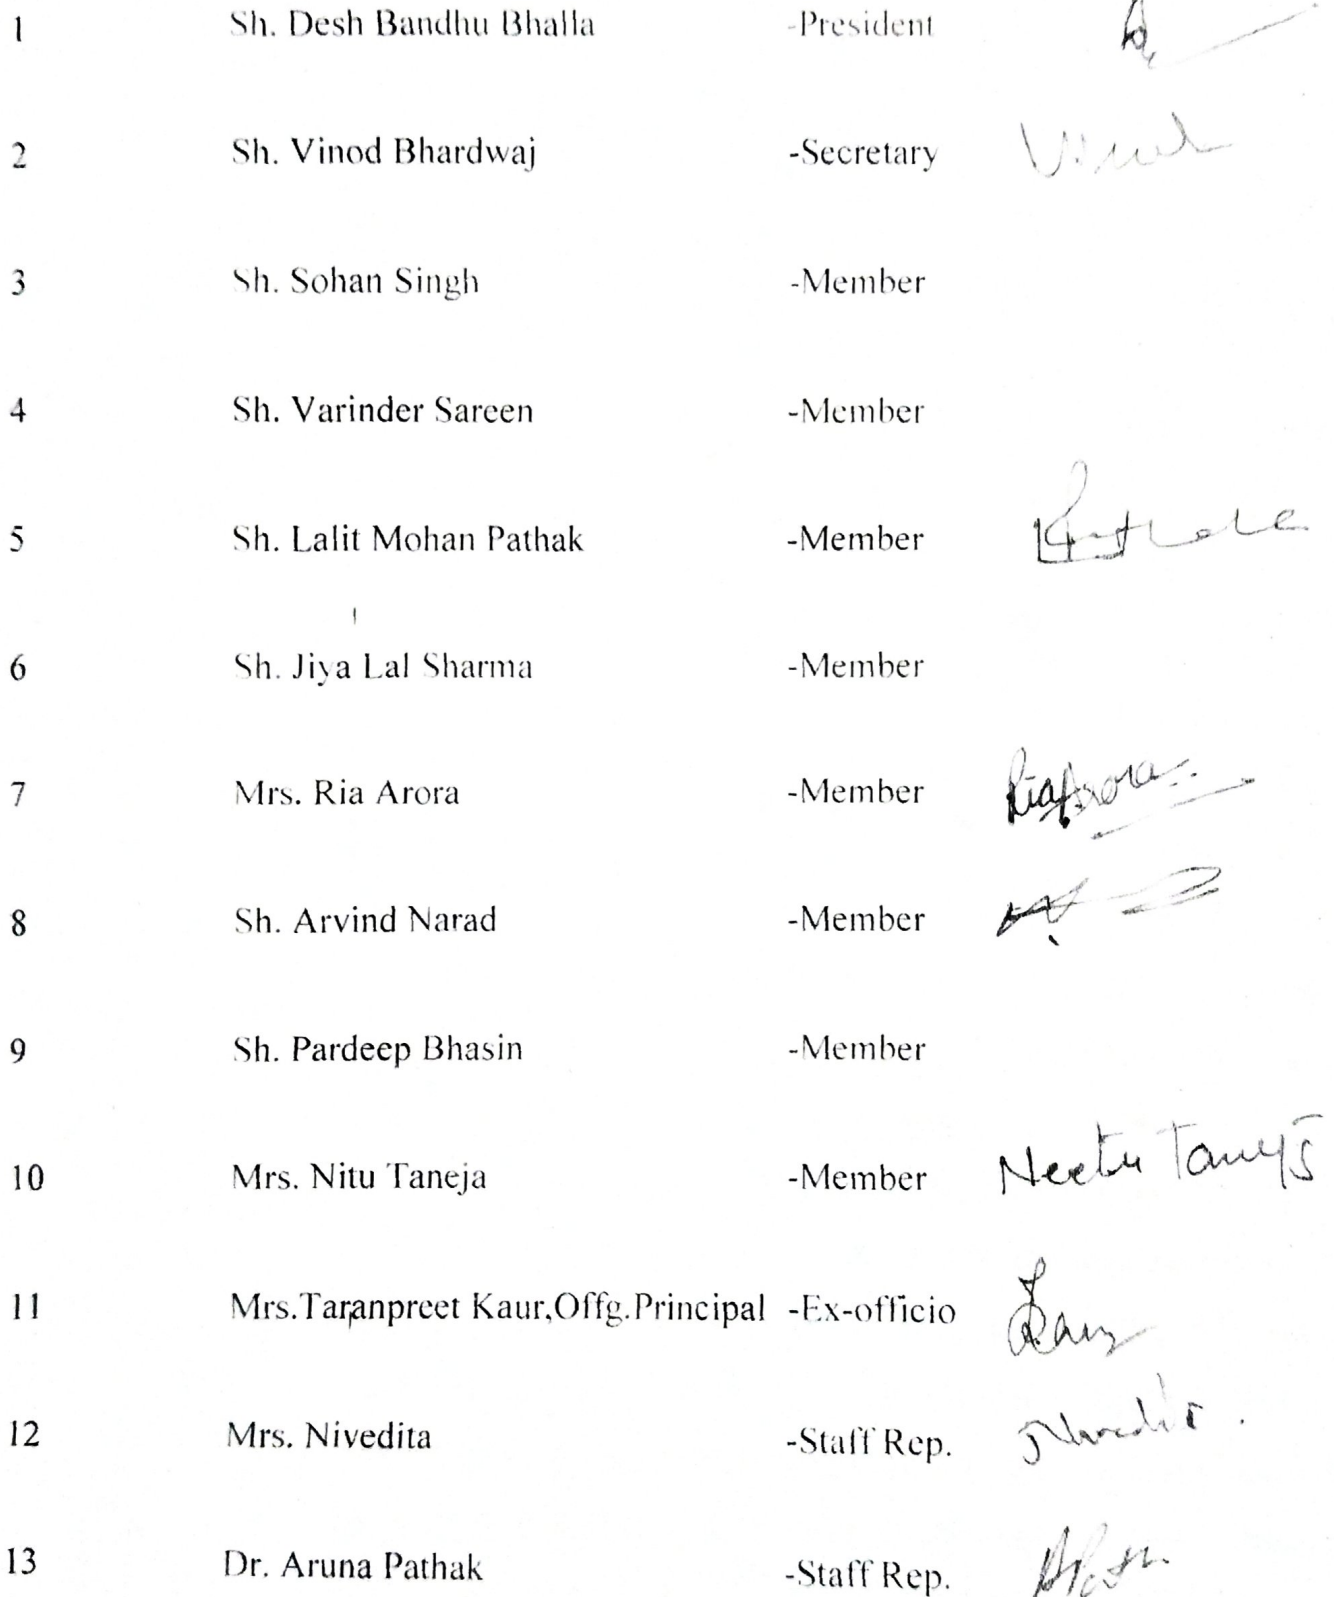 1 Sh. Desh Bandhu Bhalla -President
2 Sh. Vinod Bhardwaj -Secretary Vinod
3 Sh. Sohan Singh -Member
4 Sh. Varinder Sareen -Member
5 Sh. Lalit Mohan Pathak -Member
6 Sh. Jiya Lal Sharma -Member
7 Mrs. Ria Arora -Member Ria Arora
8 Sh. Arvind Narad -Member
9 Sh. Pardeep Bhasin -Member
10 Mrs. Nitu Taneja -Member Neetu Taneja
11 Mrs.Taranpreet Kaur,Offg.Principal -Ex-officio
12 Mrs. Nivedita -Staff Rep. Nivedita
13 Dr. Aruna Pathak -Staff Rep.